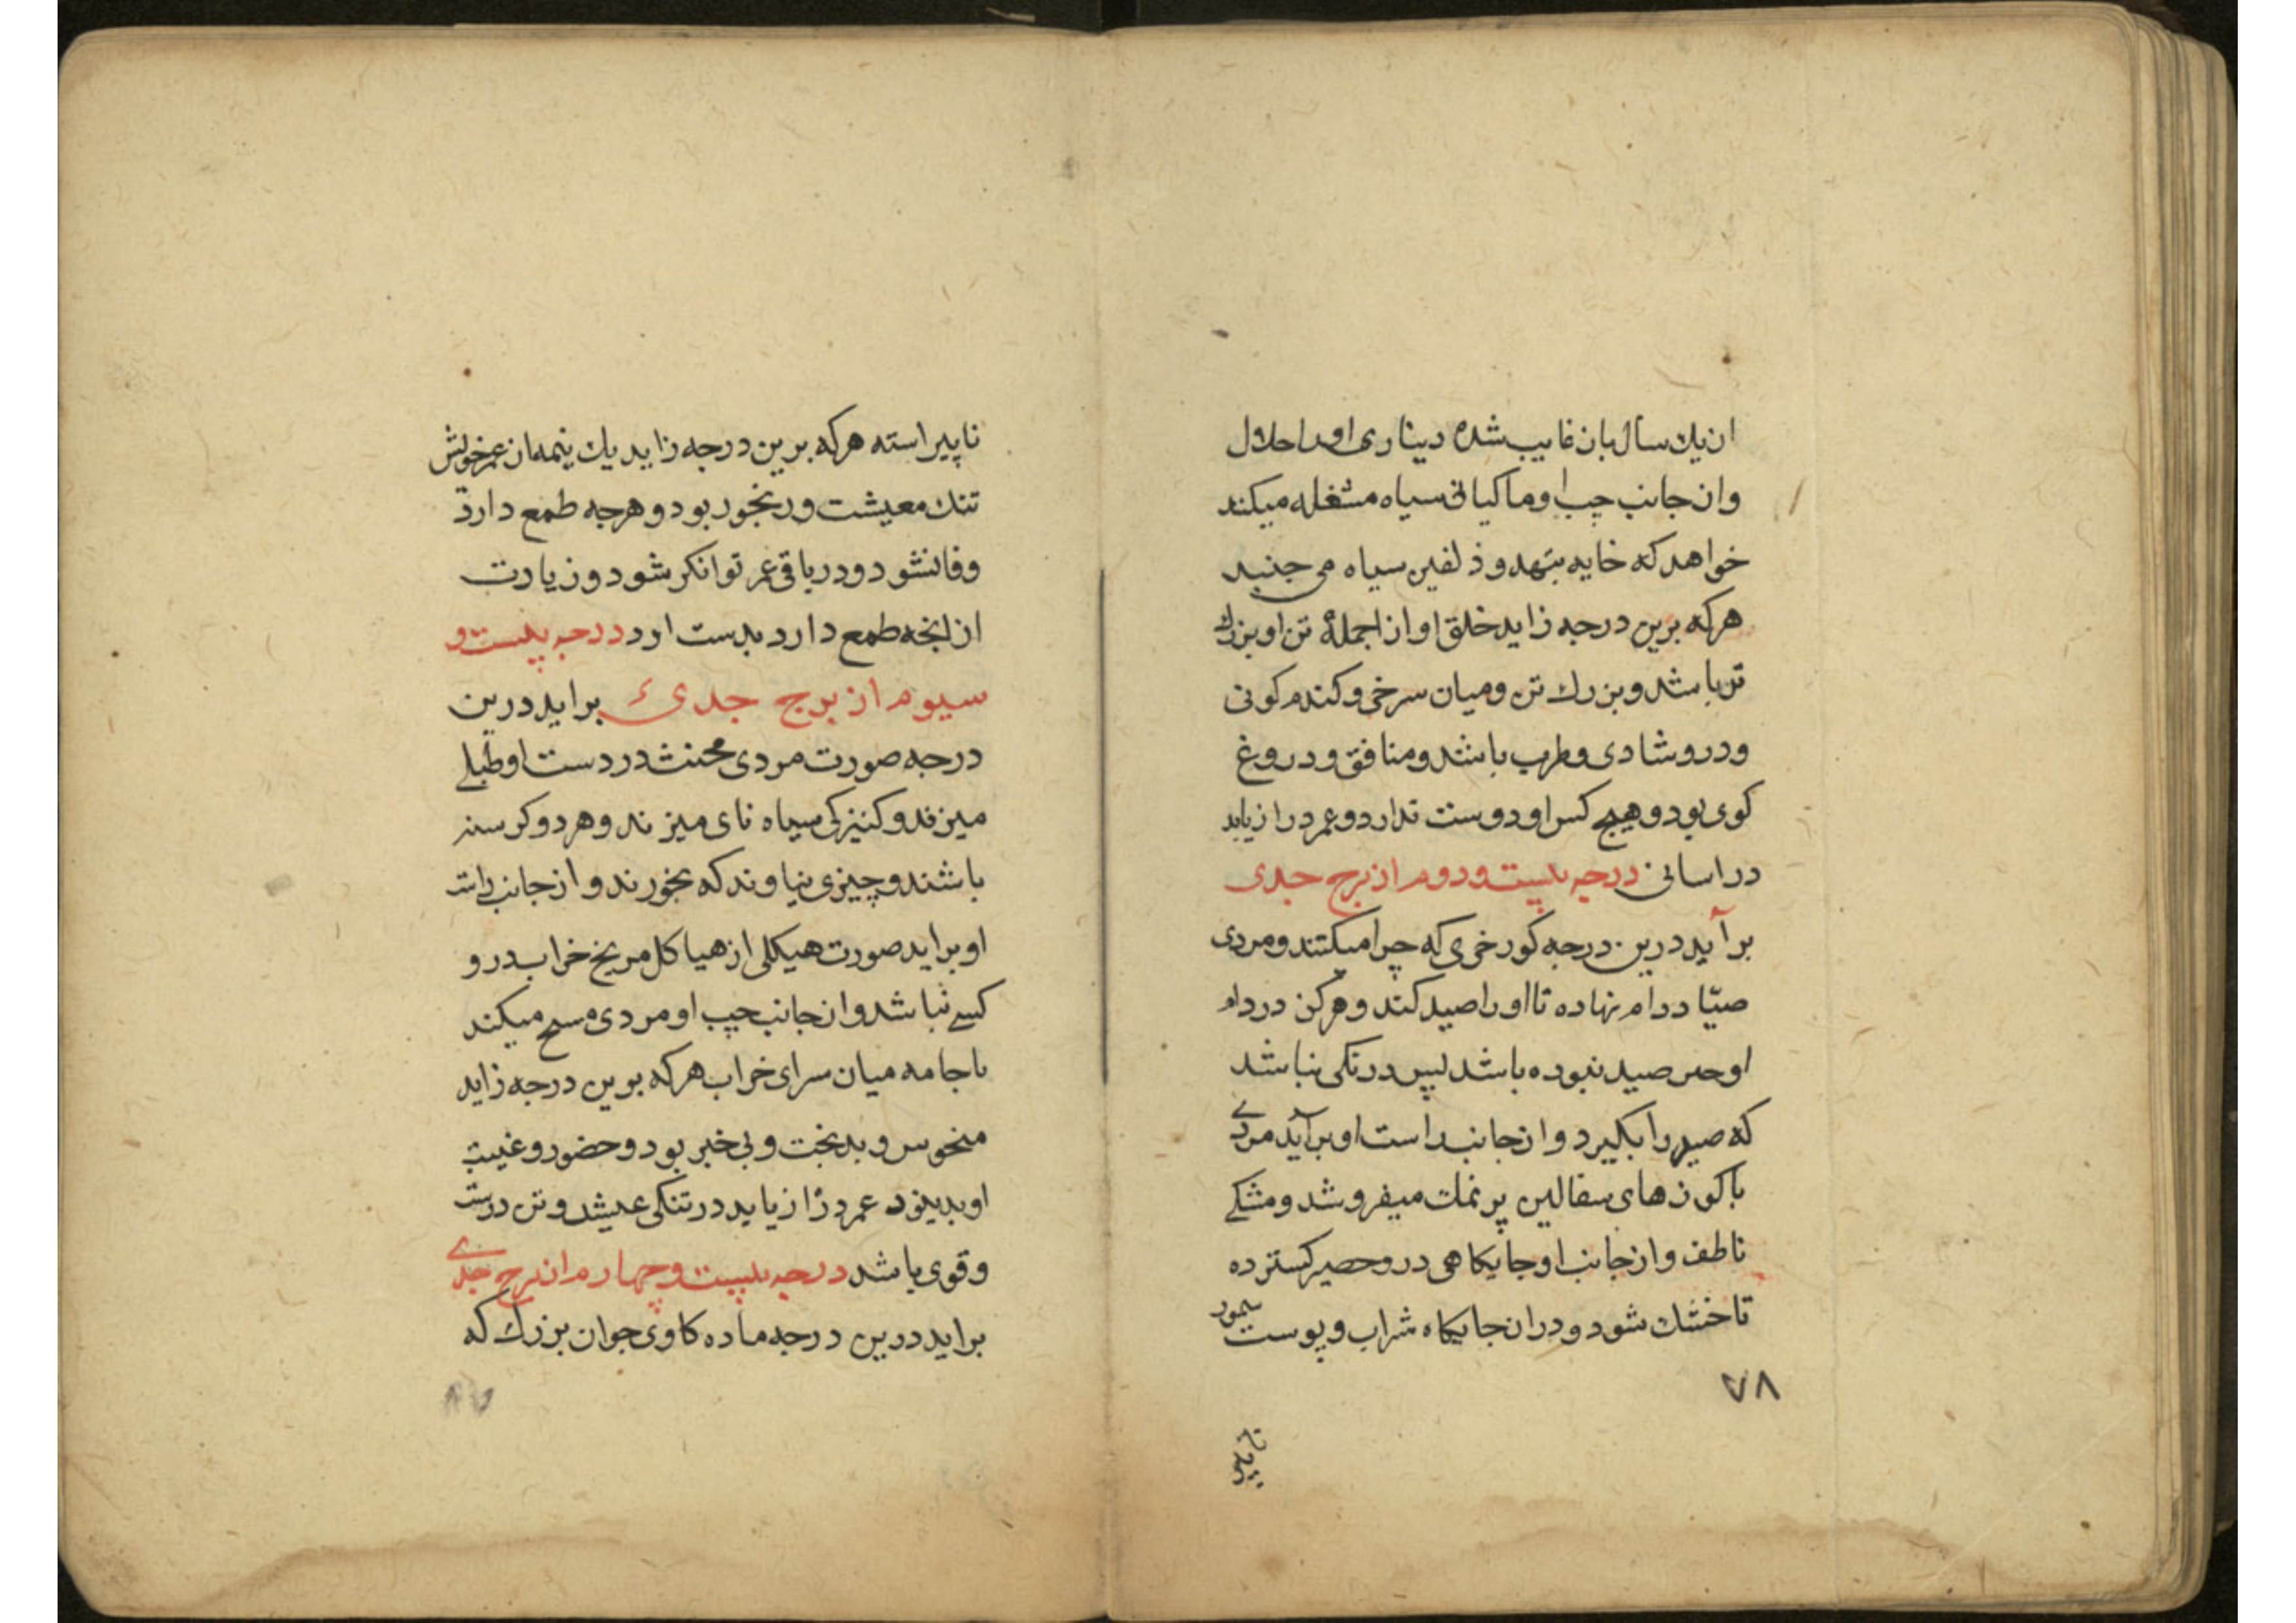 از یك سال بان غایب شده دیناری او را حلال
وان جانب چب او ماکیانی سیاه مشغله میکند
خواهد که خایه بنهد و زلفین سیاه می جنبد
هرکه برین درجه زاید خلق او از جملهٔ تن او بزرك
تر باشد و بزرك تن و میان سرخی و کندم کونی
و درو شادی و طرب باشد و منافق و دروغ
کوی بود و هیچ کس او دوست ندارد و عمر دراز یابد
در اسانی درجه بیست و دوم از برج جدی
برآید درین درجه کورخری که چرا میکند و مردی
صیّاد دام نهاده تا او را صید کند و هرکز در دام
او صید نبوده باشد پس درنکی نباشد
که صید را بکیرد و از جانب راست او برآید مردے
با کوزهای سفالین پر نمك میفروشد و مشکے
ناطف و از جانب او جایکاهی درو حصیر کسترده
تا خشك شود و دران جایکاه شراب و پوست سمور
۷۸
ناپیر
ناپیراسته هرکه برین درجه زاید یك نیمه از عمر خویش
تنك معیشت و رنجور بود و هرجه طمع دارد
وفا نشود و در باقی عمر توانکر شود و زیادت
از انجه طمع دارد بدست ارد درجه بیست و
سیوم از برج جدی براید درین
درجه صورت مردی مخنث در دست او طبلے
میزند و کنیزکی سیاه نای میزند و هر دو کرسنه
باشند و چیزی نیاوند که بخورند و از جانب راست
او براید صورت هیکلی از هیاکل مریخ خراب درو
کسے نباشد و از جانب چپ او مردی مسح میکند
با جامه میان سرای خراب هرکه برین درجه زاید
منحوس و بدبخت و بی خبر بود و حضور و غیبت
او بد بود عمر دراز یابد در تنکی عیش و تن درست
و قوی باشد درجه بیست و چهارم از برج جدے
براید درین درجه ماده کاوی جوان بزرك که